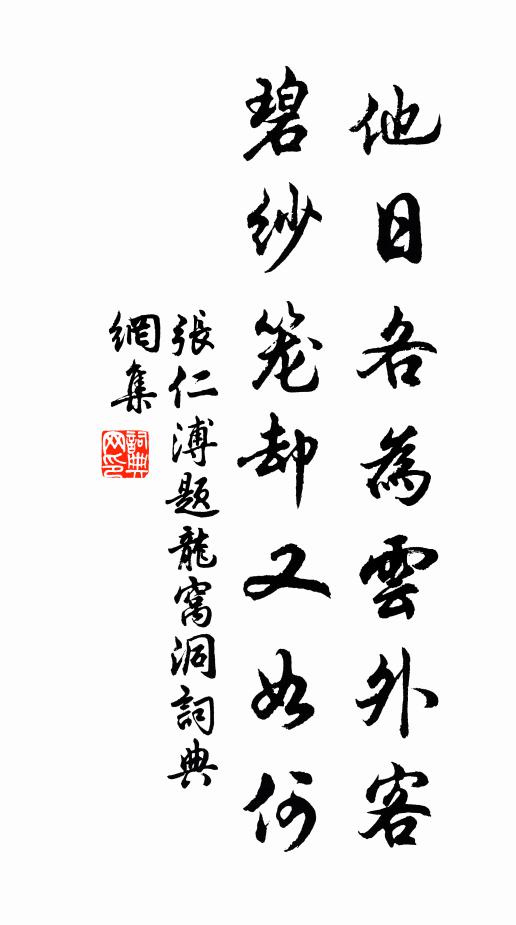 他日各為雲外客
碧紗笼却又如何
張仁溥題龍窩洞詞典
網集
詞典
网印